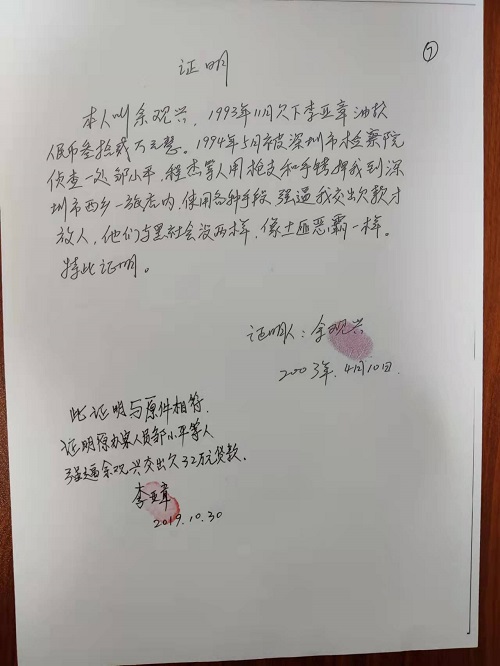 ⑦
证明
本人叫余观兴，1993年11月欠下李亚章油款
人民币叁拾贰万元整。1994年5月被深圳市检察院
侦查一处邹小平，程杰等人用枪支和手铐押我到深
圳市西乡一旅店内，使用各种手段，强逼我交出欠款才
放人，他们与黑社会没两样，像土匪恶霸一样。
特此证明。
证明人：余观兴
2003年.4月10日.
此证明与原件相符.
证明原办案人员邹小平等人
强逼余观兴交出欠32万元贷款.
李亚章
2019.10.30